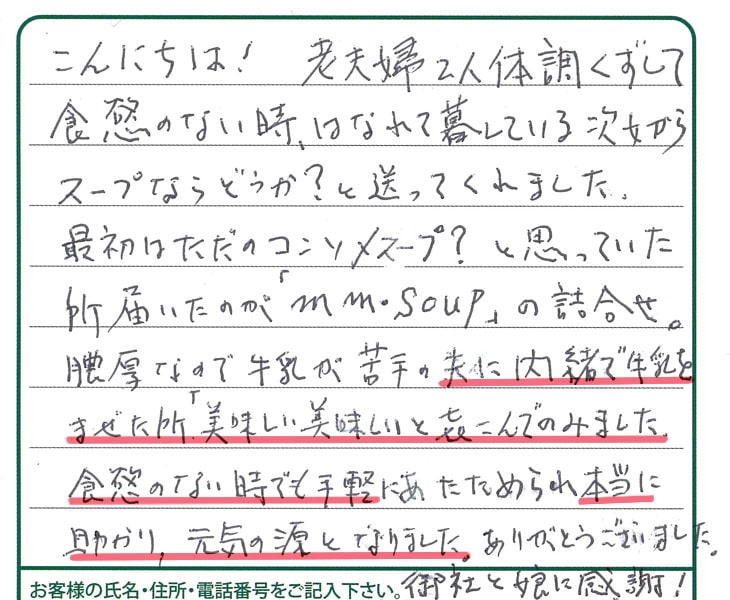 こんにちは! 老夫婦2人体調くずして
食慾のない時、はなれて暮している次女から
スープならどうか?と送ってくれました。
最初はただのコンソメスープ?と思っていた
所届いたのが「mm・soup」の詰合せ。
膿厚なので牛乳が苦手の夫に内緒で牛乳を
まぜた所「美味しい美味しいと㐂こんでのみました。
食慾のない時でも手軽にあたためられ本当に
助かり、元気の源となりました。ありがとうございました。
御社と娘に感謝!
お客様の氏名・住所・電話番号をご記入下さい。